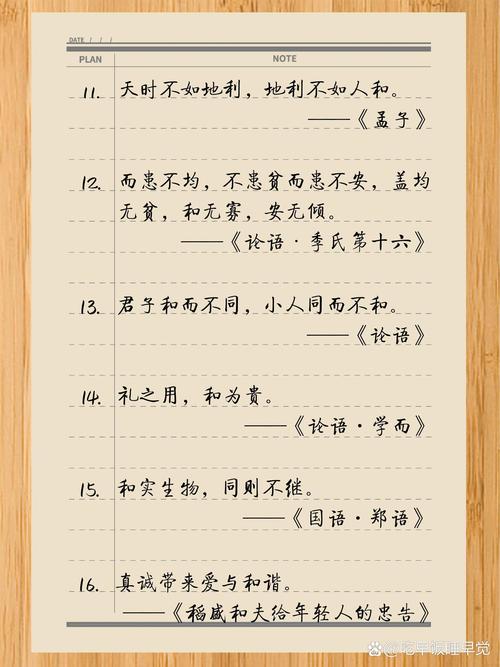 DATE / / /
PLAN NOTE
11. 天时不如地利，地利不如人和。
——《孟子》
12. 而患不均，不患贫而患不安，盖均
无贫，和无寡，安无倾。
——《论语·季氏第十六》
13. 君子和而不同，小人同而不和。
——《论语》
14. 礼之用，和为贵。
——《论语·学而》
15. 和实生物，同则不继。
——《国语·郑语》
16. 真诚带来爱与和谐。
——《稻盛和夫给年轻人的忠告》
@吃早饭睡早觉